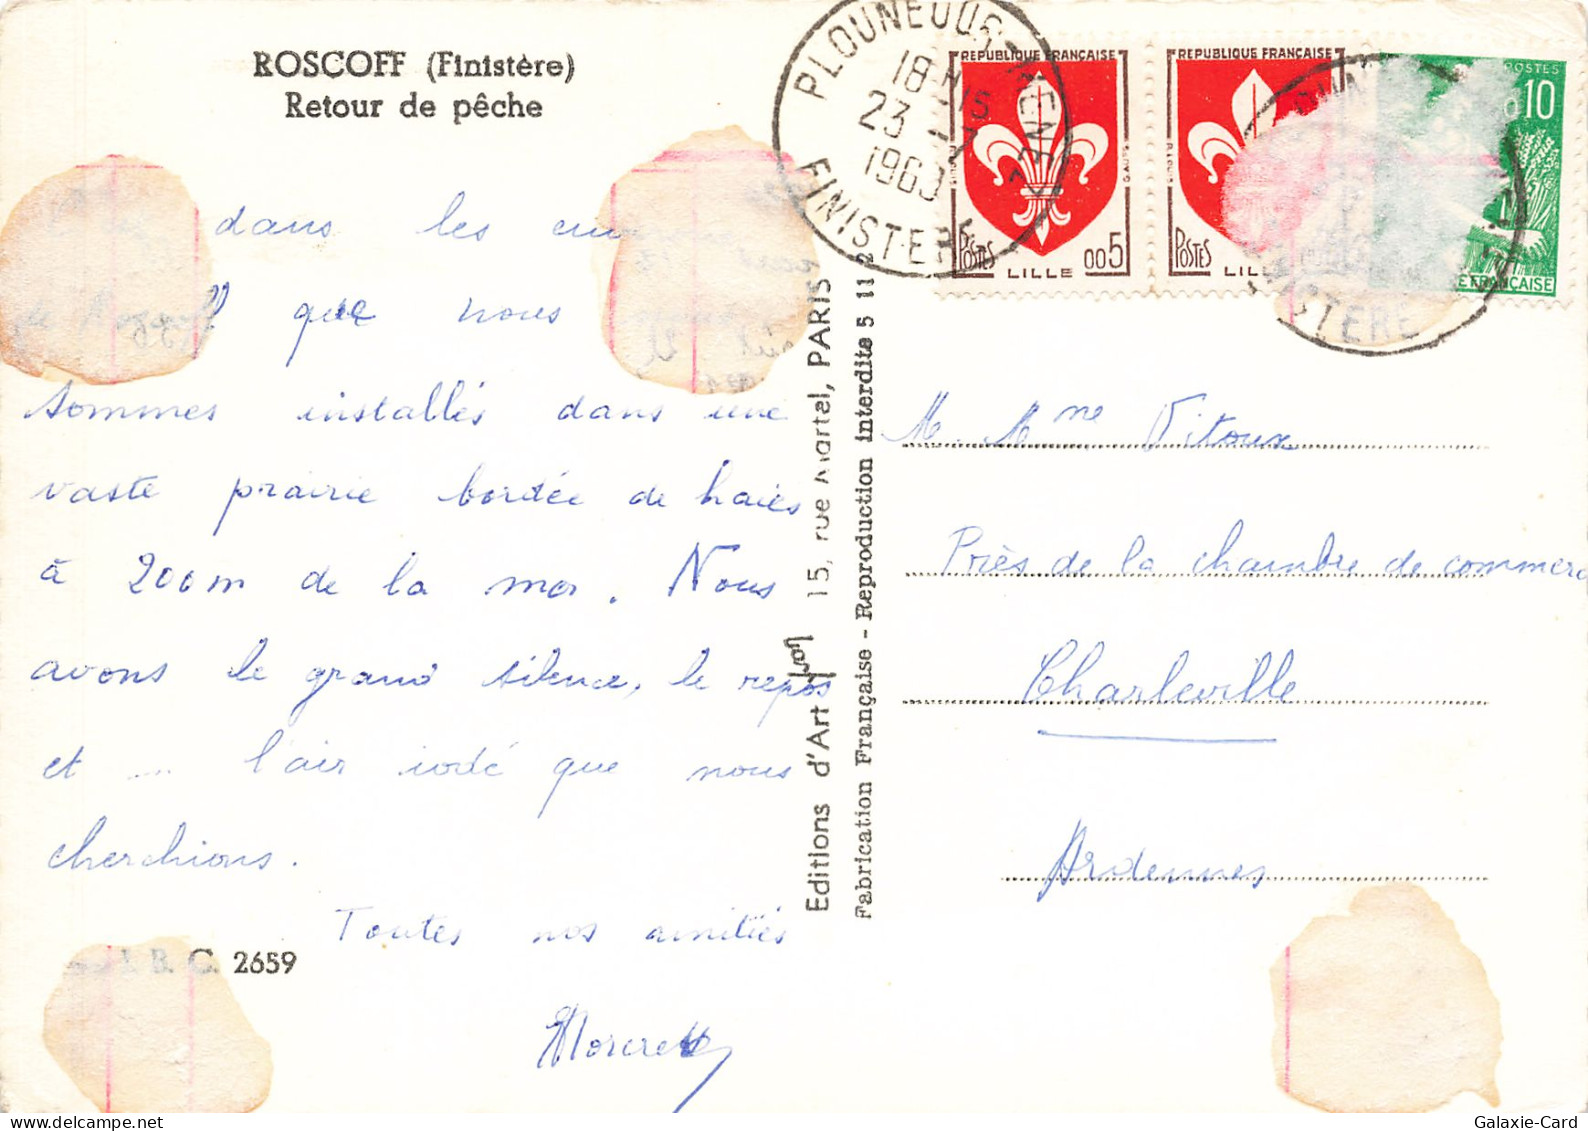 ROSCOFF (Finistère)
Retour de pêche
dans les
que nous
sommes installés dans une
vaste prairie bordée de haies
à 200m de la mer. Nous
avons le grand silence, le repos
et .... l'air iodé que nous
cherchions.
Toutes nos amitiés
B. C. 2659
Editions d'Art 15, rue Martel, PARIS
Fabrication Française - Reproduction interdite 5 11 2
18 H15
23 -7
1963
FINISTERE
REPUBLIQUE FRANÇAISE
POSTES LILLE 005
REPUBLIQUE FRANÇAISE
POSTES LIL
POSTES
0,10
E FRANÇAISE
ISTERE
M. Mme Vitoux
Près de la chambre de commerc
Charleville
Ardennes
Galaxie-Card